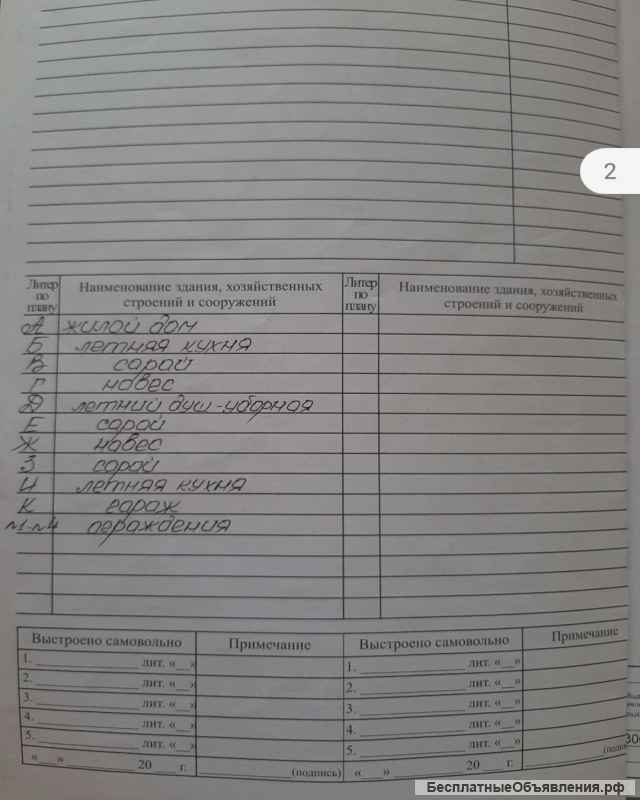 2
Литер по плану Наименование здания, хозяйственных строений и сооружений Литер по плану Наименование здания, хозяйственных строений и сооружений
А жилой дом
Б летняя кухня
В сарай
Г навес
Д летний душ-уборная
Е сарай
Ж навес
З сарай
И летняя кухня
К гараж
№1-№4 ограждения
Выстроено самовольно Примечание Выстроено самовольно Примечание
1. ______ лит. «__» 1. ______ лит. «__»
2. ______ лит. «__» 2. ______ лит. «__»
3. ______ лит. «__» 3. ______ лит. «__»
4. ______ лит. «__» 4. ______ лит. «__»
5. ______ лит. «__» 5. ______ лит. «__»
«__» ______ 20 __ г. ______ (подпись) «__» ______ 20 __ г.
БесплатныеОбъявления.рф